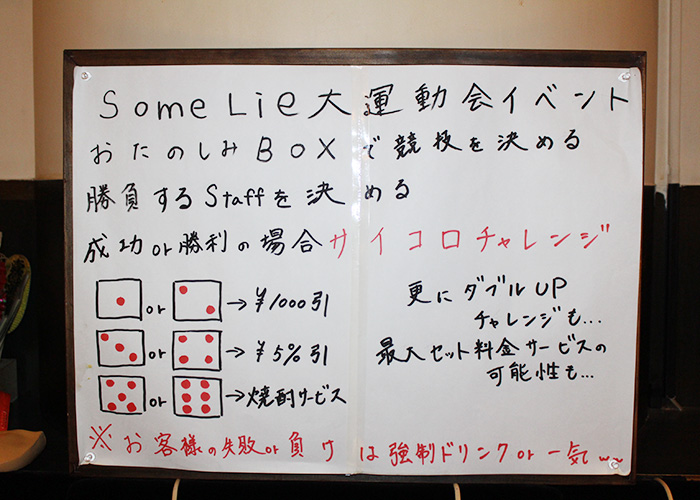 Some Lie 大運動会イベント
おたのしみBOXで競技を決める
勝負するStaffを決める
成功or勝利の場合サイコロチャレンジ
or →¥1000引
or →¥5%引
or →焼酎サービス
更にダブルUP
チャレンジも…
最大セット料金サービスの
可能性も…
※お客様の失敗or負けは強制ドリンクor一気〜〜